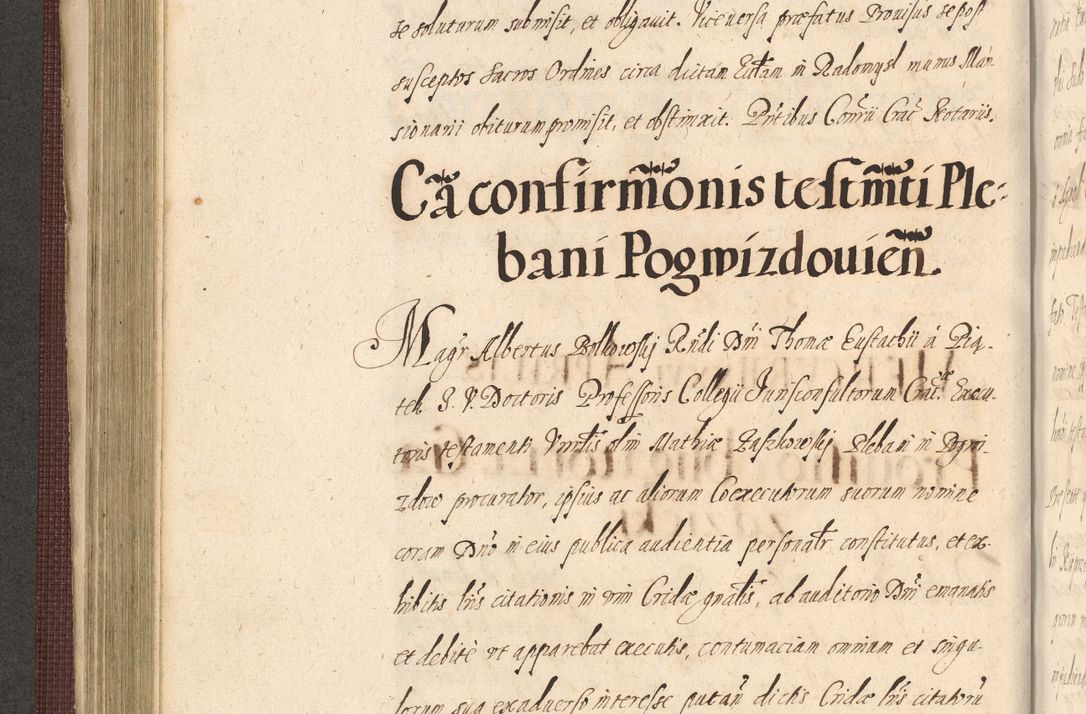 se solutarum submisit, et obligavit. Viceversa præfatus Provisus se post
susceptos sacros Ordines circa dictan Ecclãm in Radomysl munus Man-
sionarii obiturum promisit, et obstinxit. Pñtibus Consrii Crac̃ Notariis.
Cã confirm̃onis testm̃ti Ple-
bani Pogwizdovień.
Magr̃ Albertus Bolkowskj Rñdi Dñi Thomæ Eustachii á Pią-
tek I. V. Doctoris Professoris Collegij Jurisconsultorum Crac̃. Execu-
toris testamenti Vnrlis olim Mathiæ Zaszkowskj Plebani in Pogwi-
zdow procurator, ipsius ac aliorum Coexecutorum suorum nomine
coram Dño in eius publica audientia personalr̃ constitutus, et ex-
hibitis lr̃is citationis in vim Cridæ gnãlis, ab auditorio Dñi emanatis
et debitè vt apparebat executis, contumaciam omnium et singu-
lorum sua exadverso interesse putañ dictis Cridæ lr̃is citatorũ